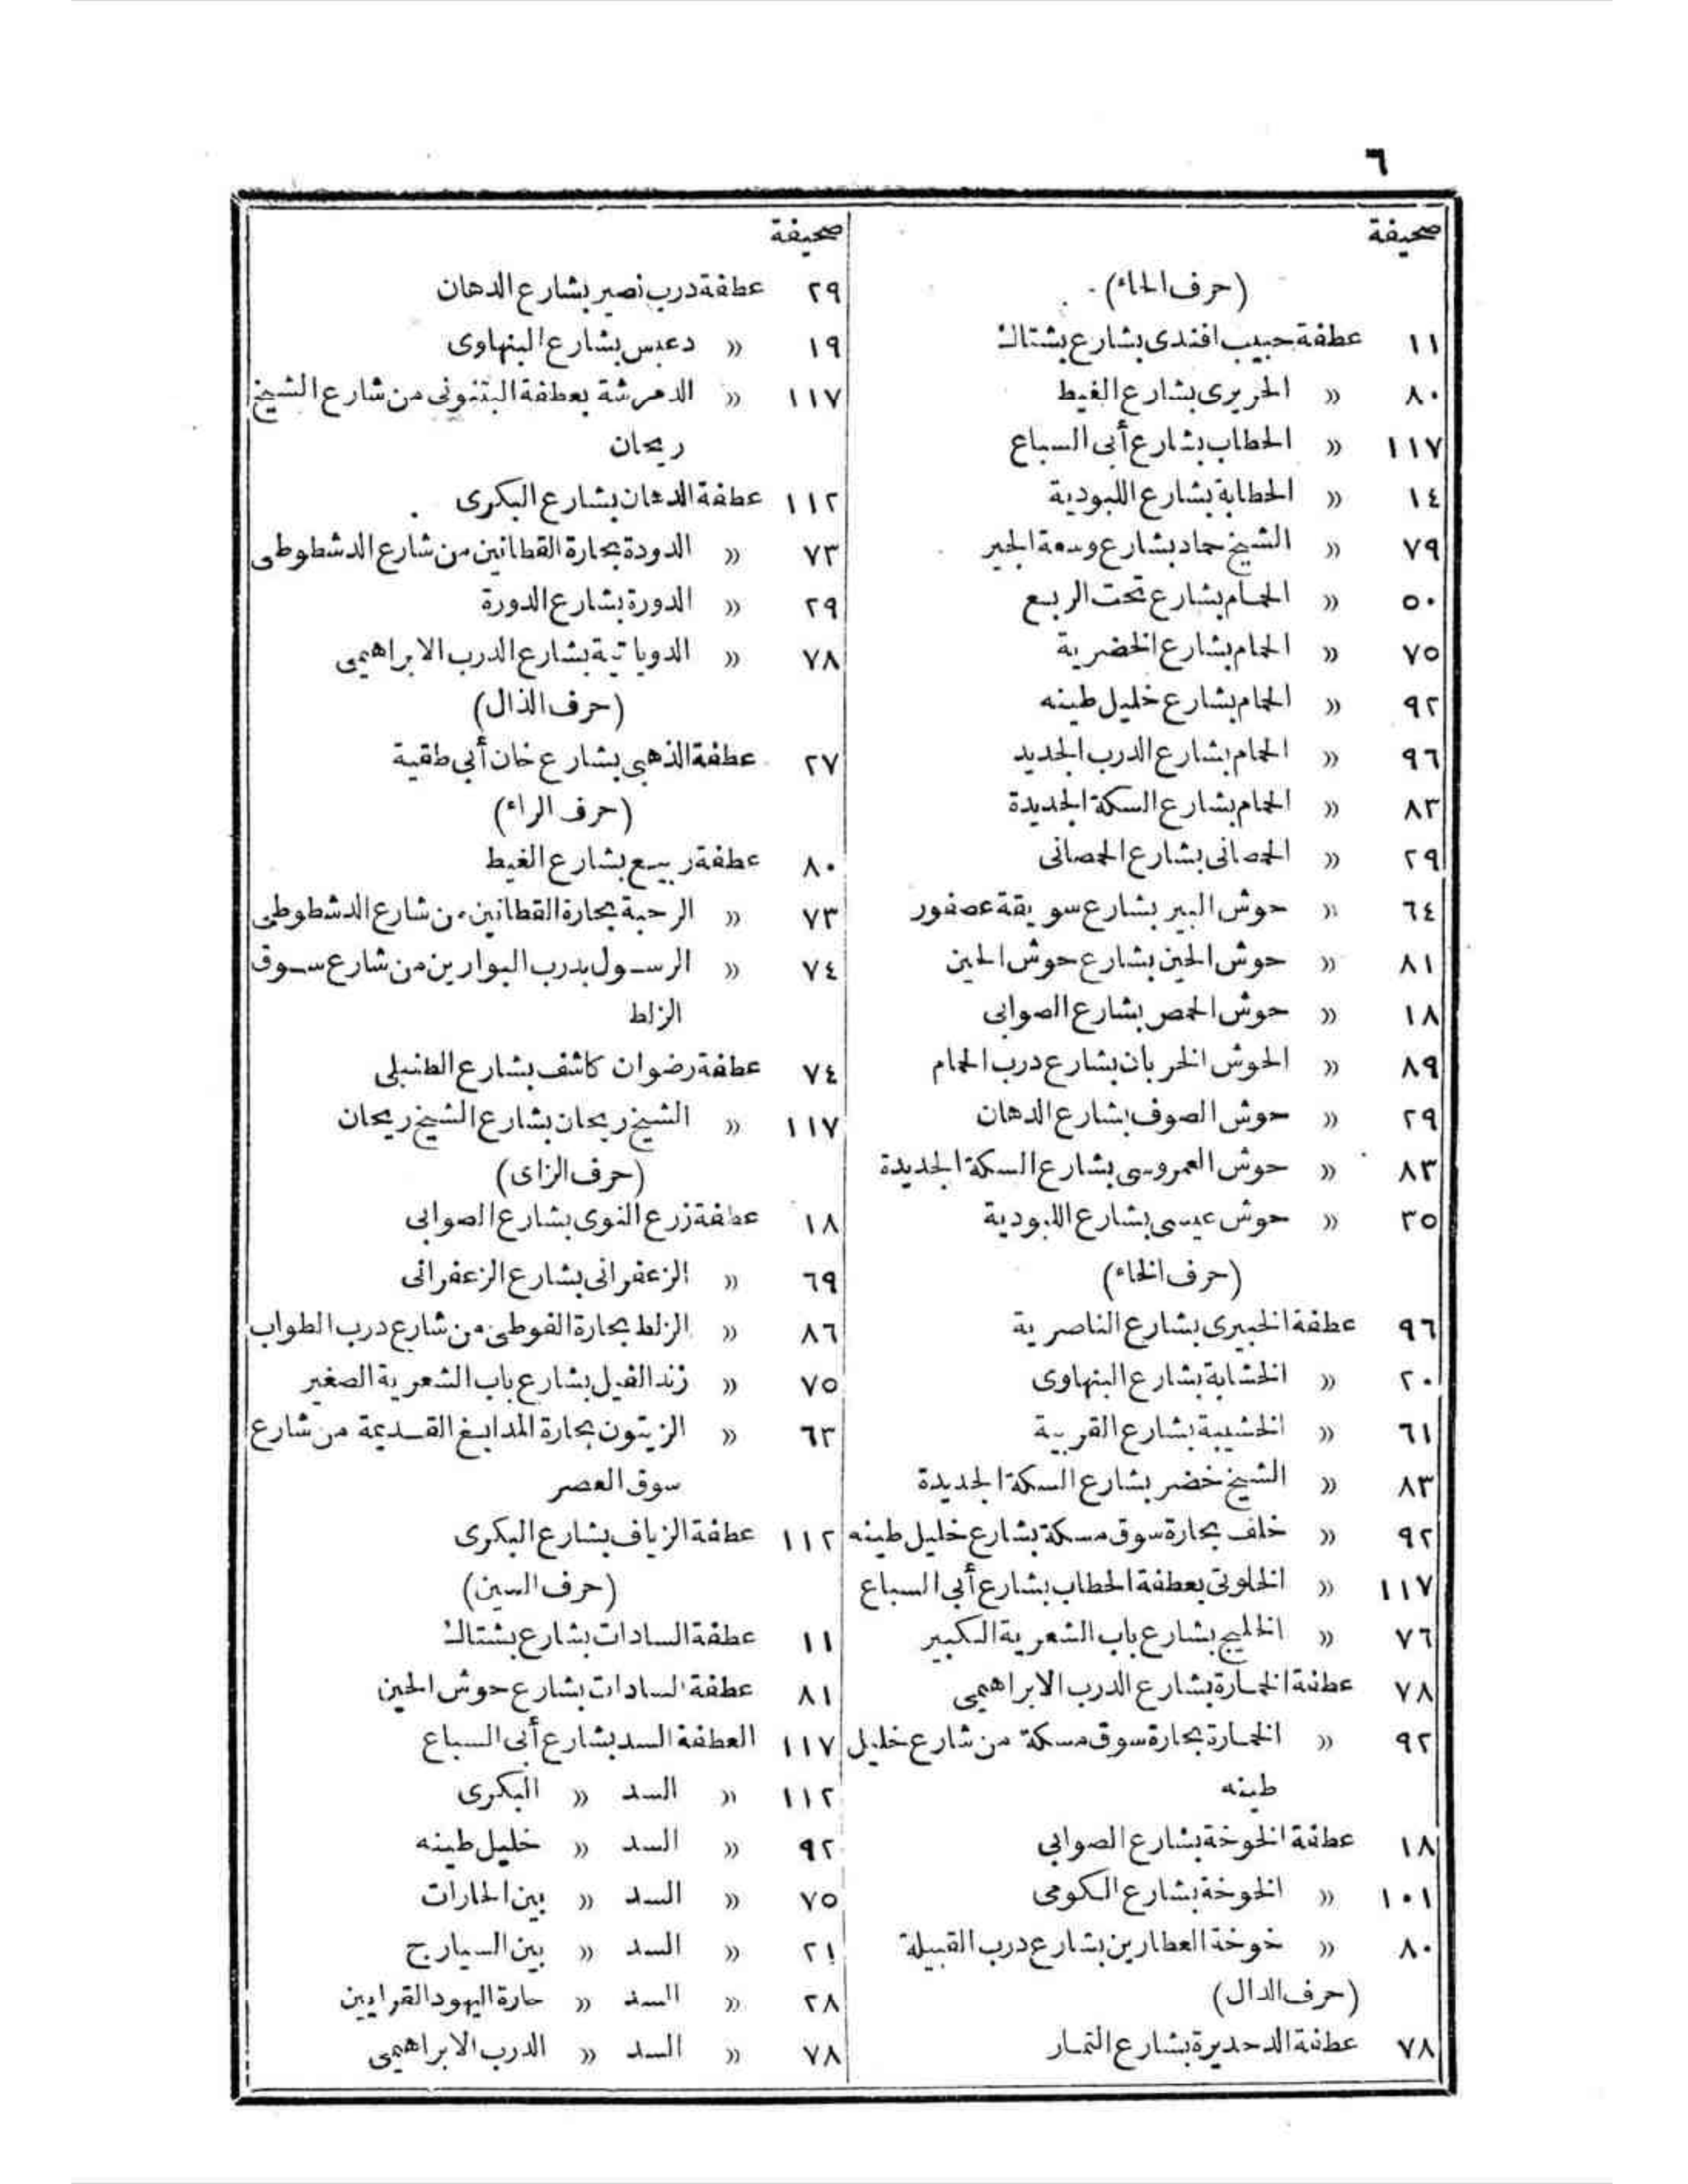 ٦
صحيفة
(حرف الحاء)
١١ عطفة حبيب افندى بشارع بشتاك
٨٠ » الحريرى بشارع الغيط
١١٧ » الحطاب بشارع أبى السباع
١٤ » الحطابة بشارع اللبودية
٧٩ » الشيخ حماد بشارع وسعة الجير
٥٠ » الحمام بشارع تحت الربع
٧٥ » الحمام بشارع الخضرية
٩٢ » الحمام بشارع خليل طينه
٩٦ » الحمام بشارع الدرب الجديد
٨٣ » الحمام بشارع السكة الجديدة
٢٩ » الحمصانى بشارع الحمصانى
٦٤ » حوش البير بشارع سويقة عصفور
٨١ » حوش الحين بشارع حوش الحين
١٨ » حوش الحمص بشارع الصوابى
٨٩ » الحوش الخربان بشارع درب الحمام
٢٩ » حوش الصوف بشارع الدهان
٨٣ » حوش العمروسى بشارع السكة الجديدة
٣٥ » حوش عيسى بشارع اللبودية
(حرف الخاء)
٩٦ عطفة الخبيرى بشارع الناصرية
٢٠ » الخشابة بشارع البنهاوى
٦١ » الخشيبة بشارع القربية
٨٣ » الشيخ خضر بشارع السكة الجديدة
٩٢ » خلف بحارة سوق مسكة بشارع خليل طينه
١١٧ » الخلوتى بعطفة الحطاب بشارع أبى السباع
٧٦ » الخليج بشارع باب الشعرية الكبير
٧٨ عطفة الخمارة بشارع الدرب الابراهيمى
٩٢ » الخمارة بحارة سوق مسكة من شارع خليل
طينه
١٨ عطفة الخوخة بشارع الصوابى
١٠١ » الخوخة بشارع الكومى
٨٠ » خوخة العطارين بشارع درب القبيلة
(حرف الدال)
٧٨ عطفة الدحديرة بشارع التمار
صحيفة
٢٩ عطفة درب نصير بشارع الدهان
١٩ » دعبس بشارع البنهاوى
١١٧ » الدمرشة بعطفة البتنونى من شارع الشيخ
ريحان
١١٢ عطفة الدهان بشارع البكرى
٧٣ » الدودة بحارة القطانين من شارع الدشطوطى
٢٩ » الدورة بشارع الدورة
٧٨ » الدوباتية بشارع الدرب الابراهيمى
(حرف الذال)
٢٧ عطفة الذهبى بشارع خان أبى طقية
(حرف الراء)
٨٠ عطفة ربيع بشارع الغيط
٧٣ » الرحبة بحارة القطانين من شارع الدشطوطى
٧٤ » الرسول بدرب البوارين من شارع سوق
الزلط
٧٤ عطفة رضوان كاشف بشارع الطنبلى
١١٧ » الشيخ ريحان بشارع الشيخ ريحان
(حرف الزاى)
١٨ عطفة زرع النوى بشارع الصوابى
٦٩ » الزعفرانى بشارع الزعفرانى
٨٦ » الزلط بحارة الفوطى من شارع درب الطواب
٧٥ » زند الفيل بشارع باب الشعرية الصغير
٦٣ » الزيتون بحارة المدابغ القديمة من شارع
سوق العصر
١١٢ عطفة الزياف بشارع البكرى
(حرف السين)
١١ عطفة السادات بشارع بشتاك
٨١ عطفة السادات بشارع حوش الحين
١١٧ العطفة السد بشارع أبى السباع
١١٢ » السد » البكرى
٩٢ » السد » خليل طينه
٧٥ » السد » بين الحارات
٢١ » السد » بين السيارج
٢٨ » السد » حارة اليهود القرايين
٧٨ » السد » الدرب الابراهيمى